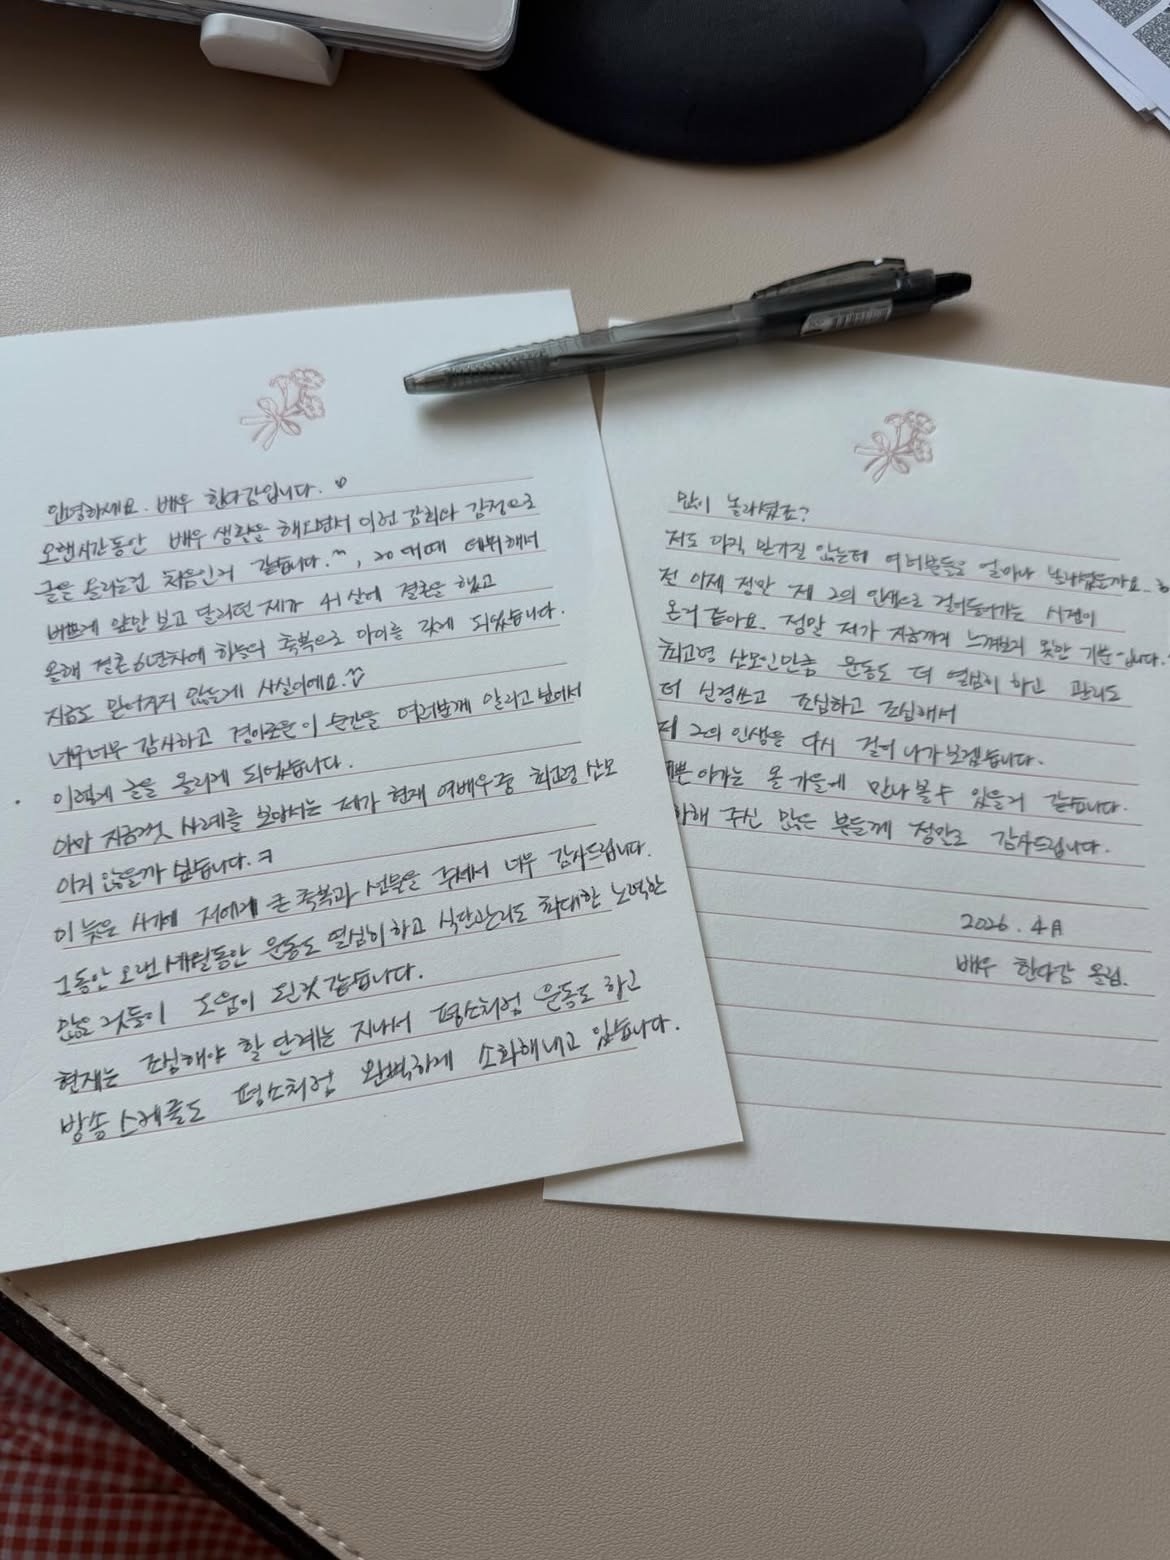 안녕하세요. 배우 한다감입니다. ♡
오랜시간동안 배우 생활을 해오면서 이런 감회와 감정으로
글을 올리는건 처음인거 같습니다.^^, 20대때 데뷔해서
바쁘게 앞만 보고 달리던 제가 41살에 결혼을 했고
올해 결혼6년차에 하늘의 축복으로 아이를 갖게 되었습니다.
지금도 믿어지지 않는게 사실이에요.
너무너무 감사하고 경이로운 이 순간을 여러분께 알리고 싶어서
이렇게 글을 올리게 되었습니다.
아마 지금껏 사례를 보아서는 제가 현재 여배우중 최고령 산모
이지 않을까 싶습니다.ㅋ
이 늦은 시기에 저에게 큰 축복과 선물을 주셔서 너무 감사드립니다.
그동안 오랜 세월동안 운동도 열심히 하고 식단관리도 최대한 노력한
많은 것들이 도움이 된것 같습니다.
현재는 조심해야 할 단계는 지나서 평소처럼 운동도 하고
방송 스케줄도 평소처럼 완벽하게 소화해내고 있습니다.
많이 놀라셨죠?
저도 아직 믿기질 않는데 여러분들은 얼마나 놀라셨을까요..
전 이제 정말 제 2의 인생으로 걸어들어가는 시점이
온거 같아요. 정말 저가 지금까지 느껴보지 못한 기분입니다.
최고령 산모인만큼 운동도 더 열심히 하고 관리도
더 신경쓰고 조심하고 조심해서
제 2의 인생을 다시 걸어 나가보겠습니다.
쁜 아가는 올 가을에 만나볼수 있을거 같습니다.
하해 주신 많은 분들께 정말로 감사드립니다.
2026. 4月
배우 한다감 올림.